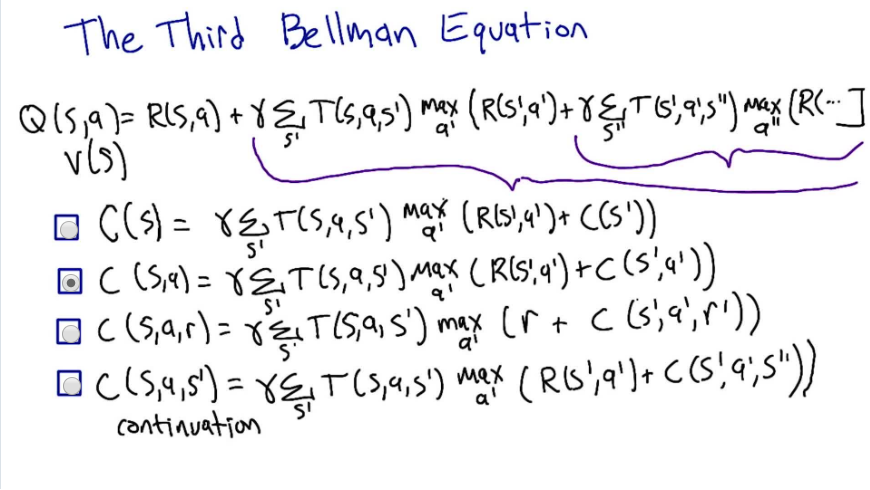 The Third Bellman Equation
Q(s,a) = R(s,a) + γ Σ_s' T(s,a,s') max_a' (R(s',a') + γ Σ_s'' T(s',a',s'') max_a'' (R(...]
V(s)
C(s) = γ Σ_s' T(s,a,s') max_a' (R(s',a') + C(s'))
C(s,a) = γ Σ_s' T(s,a,s') max_a' (R(s',a') + C(s',a'))
C(s,a,r) = γ Σ_s' T(s,a,s') max_a' (r + C(s',a',r'))
C(s,a,s') = γ Σ_s' T(s,a,s') max_a' (R(s',a') + C(s',a',s''))
continuation